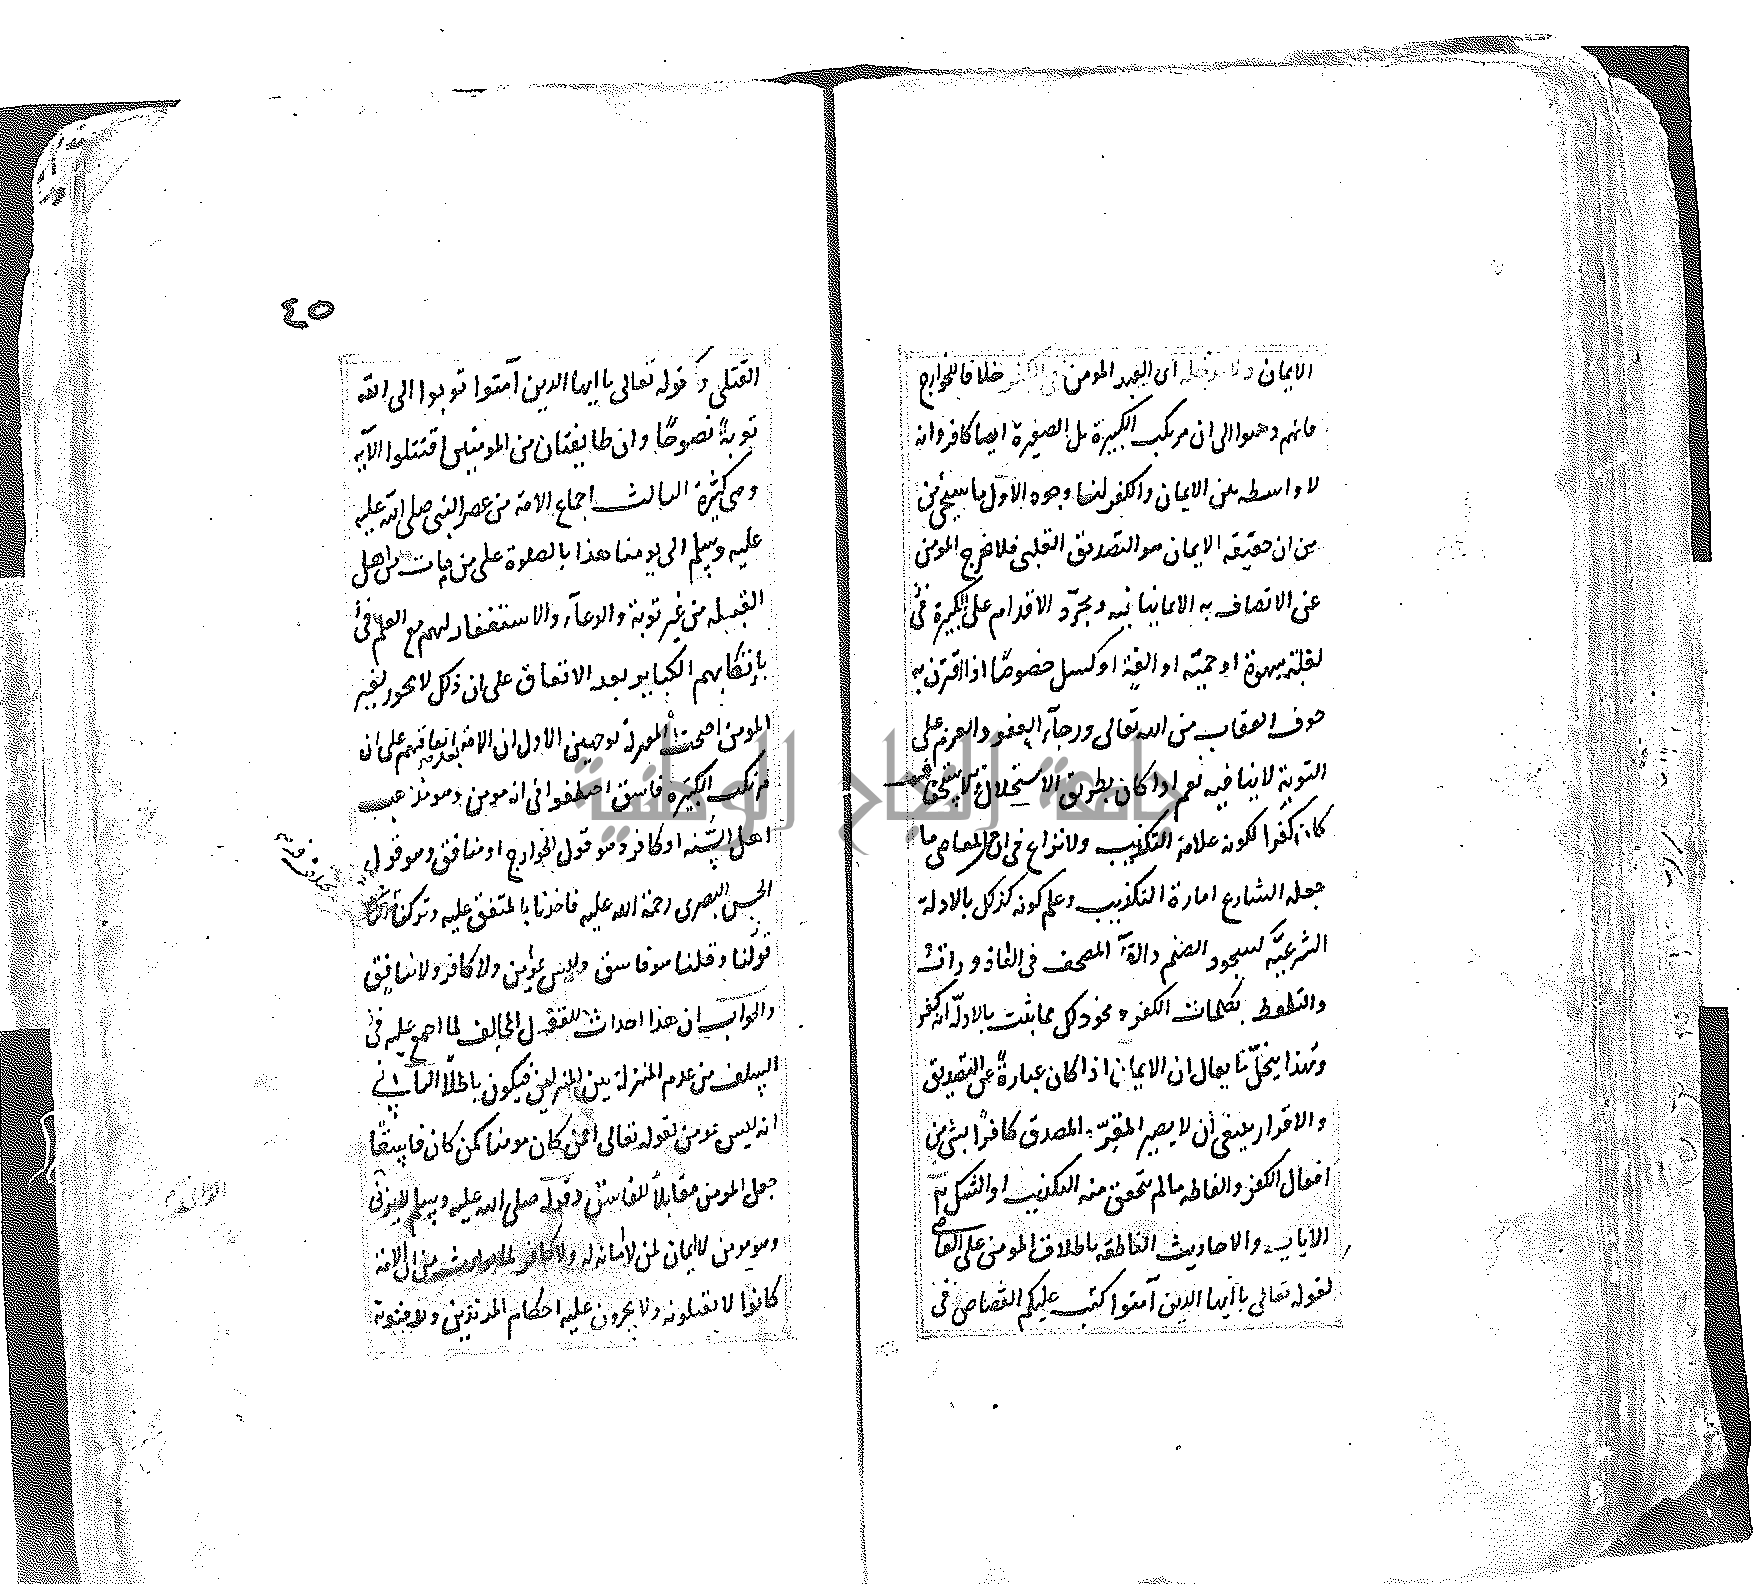 الايمان ولا تدخله اى العبد المومن فى الكفر خلافا للخوارج
فانهم ذهبوا الى ان مرتكب الكبيرة بل الصغيرة ايضا كافر وانه
لا واسطه بين الايمان والكفر لنا وجوه الأول ما سيجئ من
من ان حقيقه الايمان هو التصديق القلبى فلا يخرج المومن
عن الاتصاف به الا بما ينافيه ومجرّد الاقدام على الكبيرة فئ
لغلبة شهوة او حميّه او انفة او كسل خصوصًا اذا اقترن به
خوف العقاب من الله تعالى ورجآء العفو والعزم على
التوبة لا ينافيه نعم اذا كان بطريق الاستحلال والاستخفاف
كان كفرا لكونه علامة التكذيب ولا نزاع فى ان من المعاصى ما
جعله الشارع امارة التكذيب وعلم كونه كذلك بالادلة
الشرعيّه كسجود الصنم والقآء المصحف فى القاذورات
والتلفظ بكلمات الكفر ونحو ذلك مما يثبت بالادلّه انه كفر
وبهذا ينحلّ ما يقال ان الايمان اذا كان عبارةً عن التصديق
والاقرار ينبغى أن لا يصير المقرّ المصدق كافرًا بشئ من
افعال الكفر والفاظه ما لم يتحقق منه التكذيب او الشك
الايات والاحاديث الناطقه باطلاق المومن على العاصى
لقوله تعالى يا أيها الذين آمنوا كتب عليكم القصاص فى
٤٥
القتلى وقوله تعالى يا ايها الذين آمنوا توبوا الى الله
توبةً نصوحًا وان طايفتان من المومنين اقتتلوا الآيه
وهى كثيرة الثالث اجماع الامة من عصر النبى صلى الله عليه
عليه وسلم الى يومنا هذا بالصلوة على من مات من اهل
القبله من غير توبة والدعآء والاستغفار لهم مع العلم فئ
بإرتكابهم الكباير بعد الاتفاق على ان ذلك لا يجوز لغير
المومن احتجت المعتزلة بوجهين الاول ان الامة بعد اتفاقهم على ان
مرتكب الكبيرة فاسق اختلفوا فى انه مومن وهو مذهب
اهل السّنه او كافر وهو قول الخوارج او منافق وهو قول
الحسن البصرى رحمة الله عليه فاخذنا بالمتفق عليه وتركنا
قولنا وقلنا هو فاسق وليس بمؤمن ولا كافر ولا منافق
والجواب ان هذا احداث للقول المخالف لما اجمع عليه فئ
السلف من عدم المنزلة بين المنزلتين فيكون باطلاً الثانى
انه ليس بمومن لقوله تعالى افمن كان مومنا كمن كان فاسقًا
جعل المومن مقابلاً للفاسق وقوله صلى الله عليه وسلم لا يزنى
وهو مومن لا ايمان لمن لا أمانة له ولا كافر لما تواتر من ان الامة
كانوا لا يقتلونه ولا يجرون عليه احكام المرتدين ولا يدفنونه
جامعة النجاح الوطنية